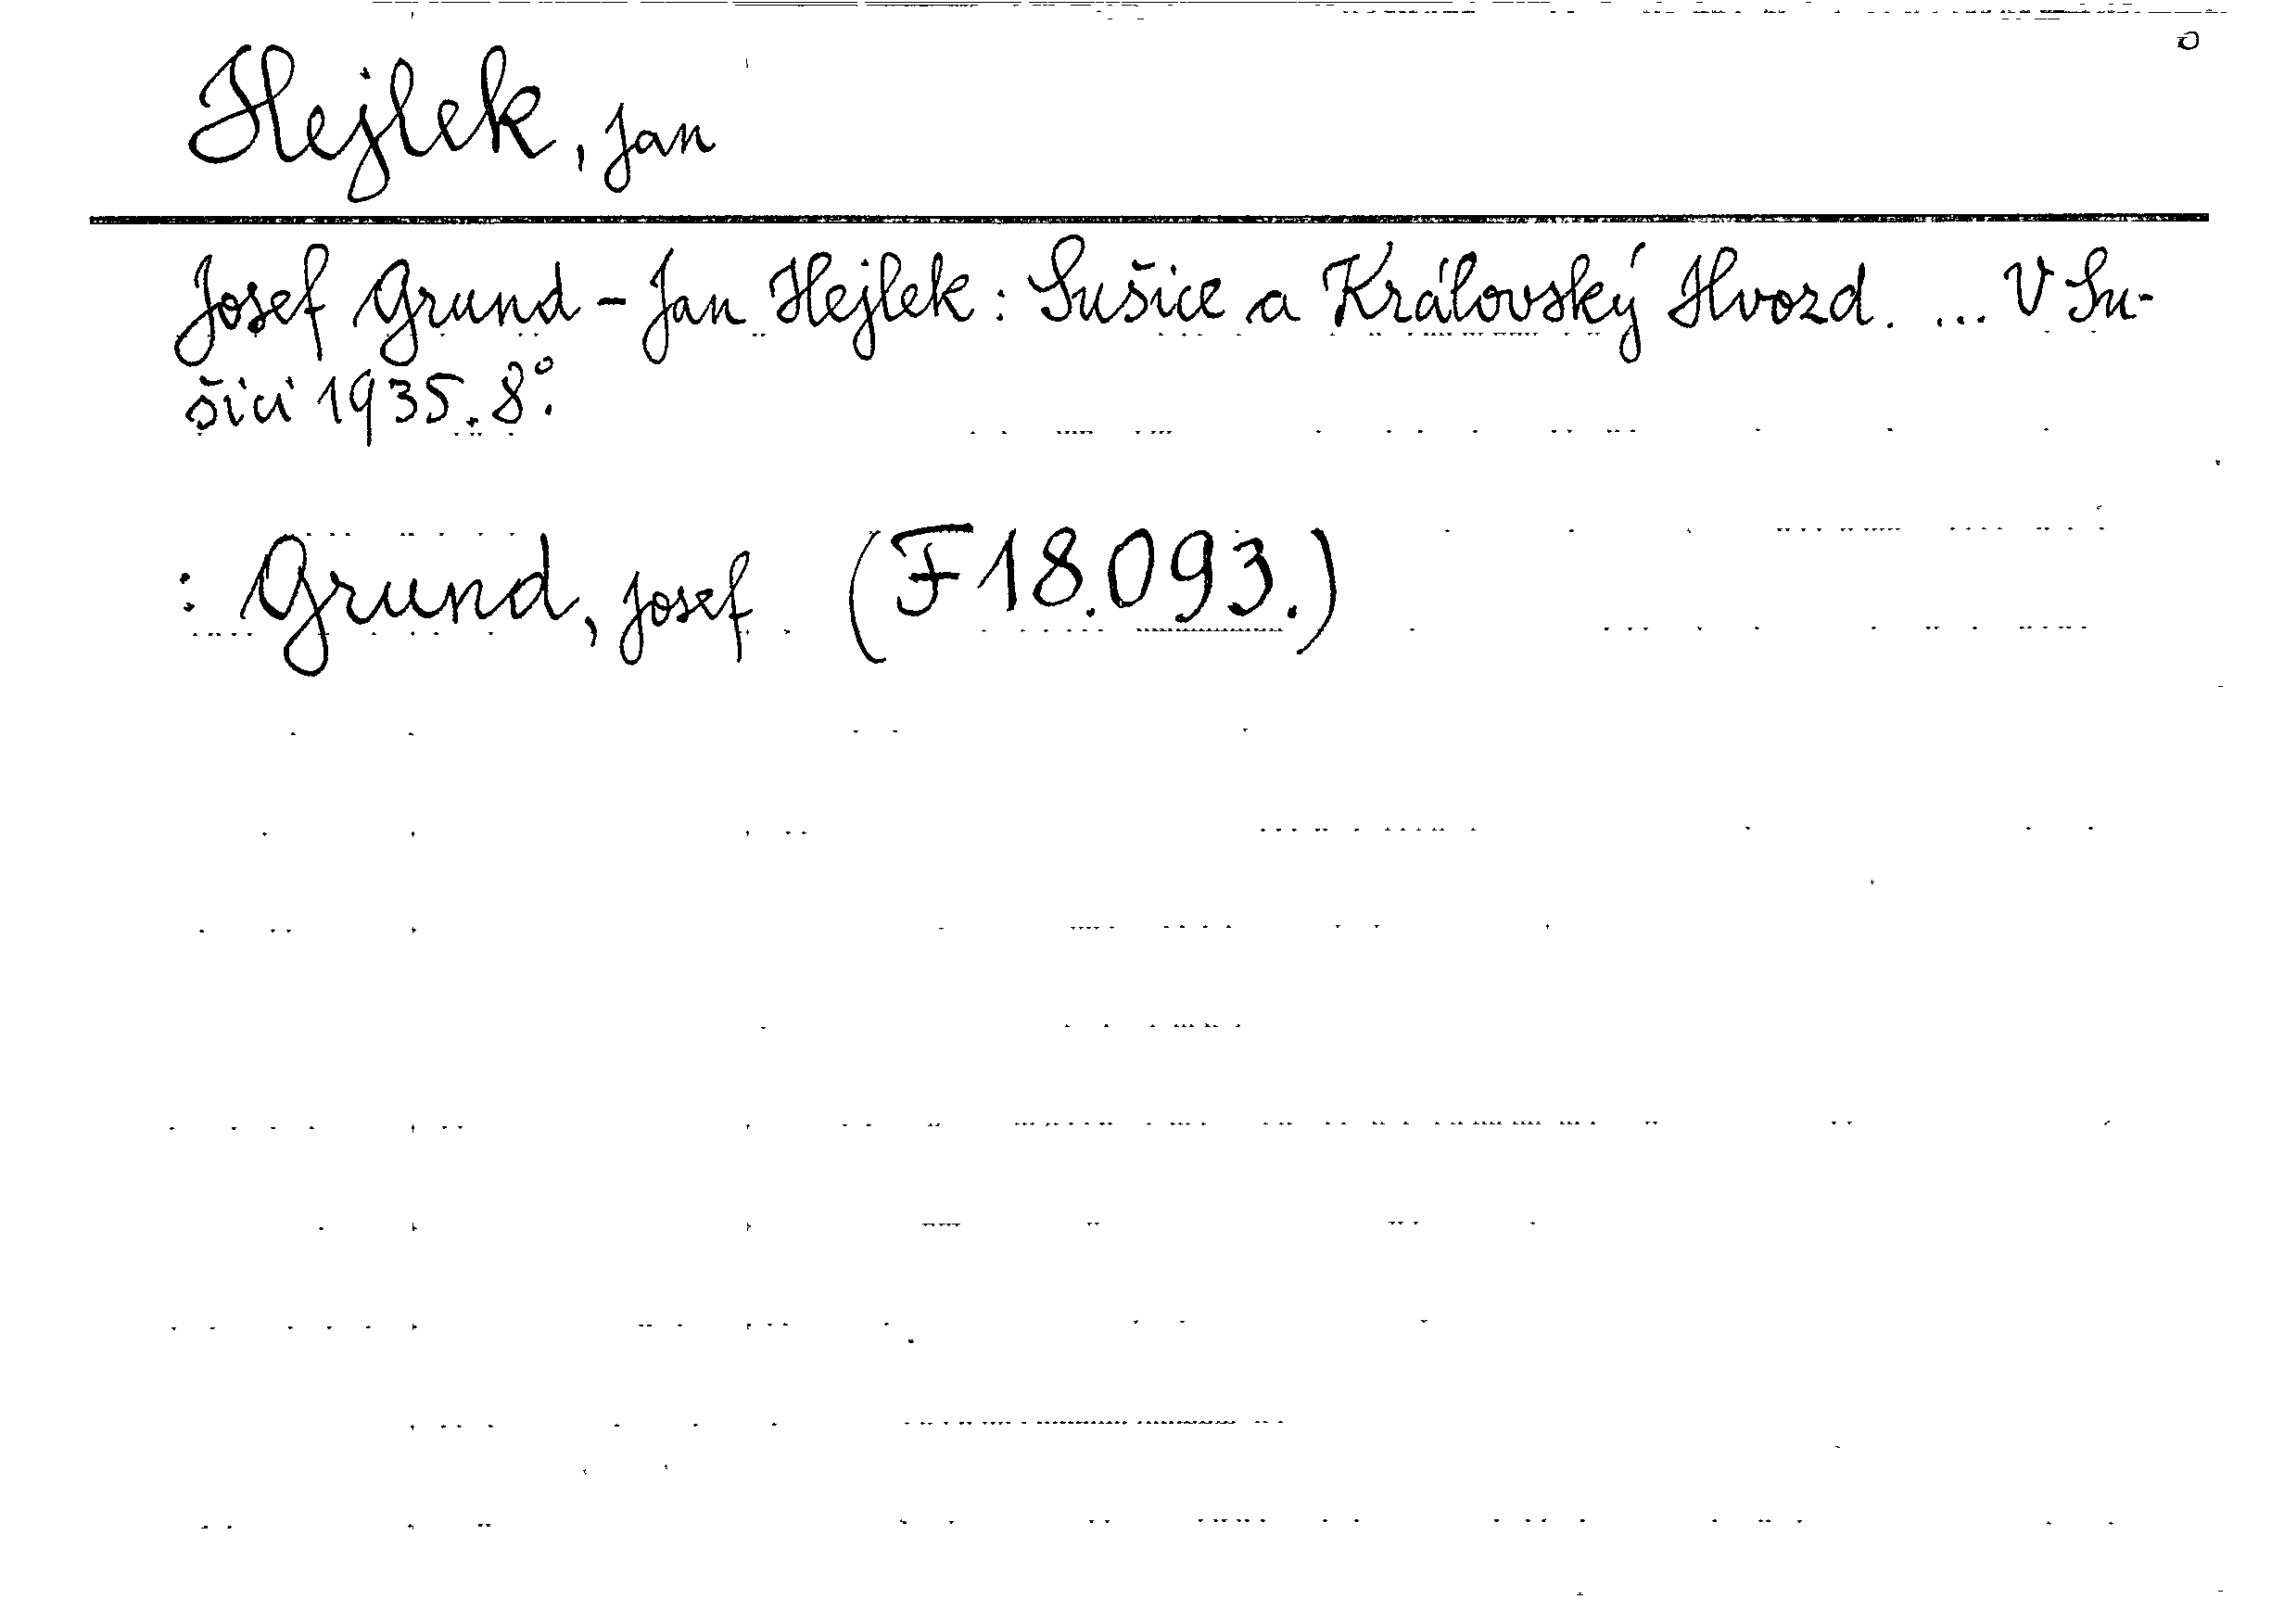 Hejlek, Jan
Josef Grund - Jan Hejlek: Sušice a Královský Hvozd. ... V Su-
šici 1935. 8°.
: Grund, Josef (F 18.093.)